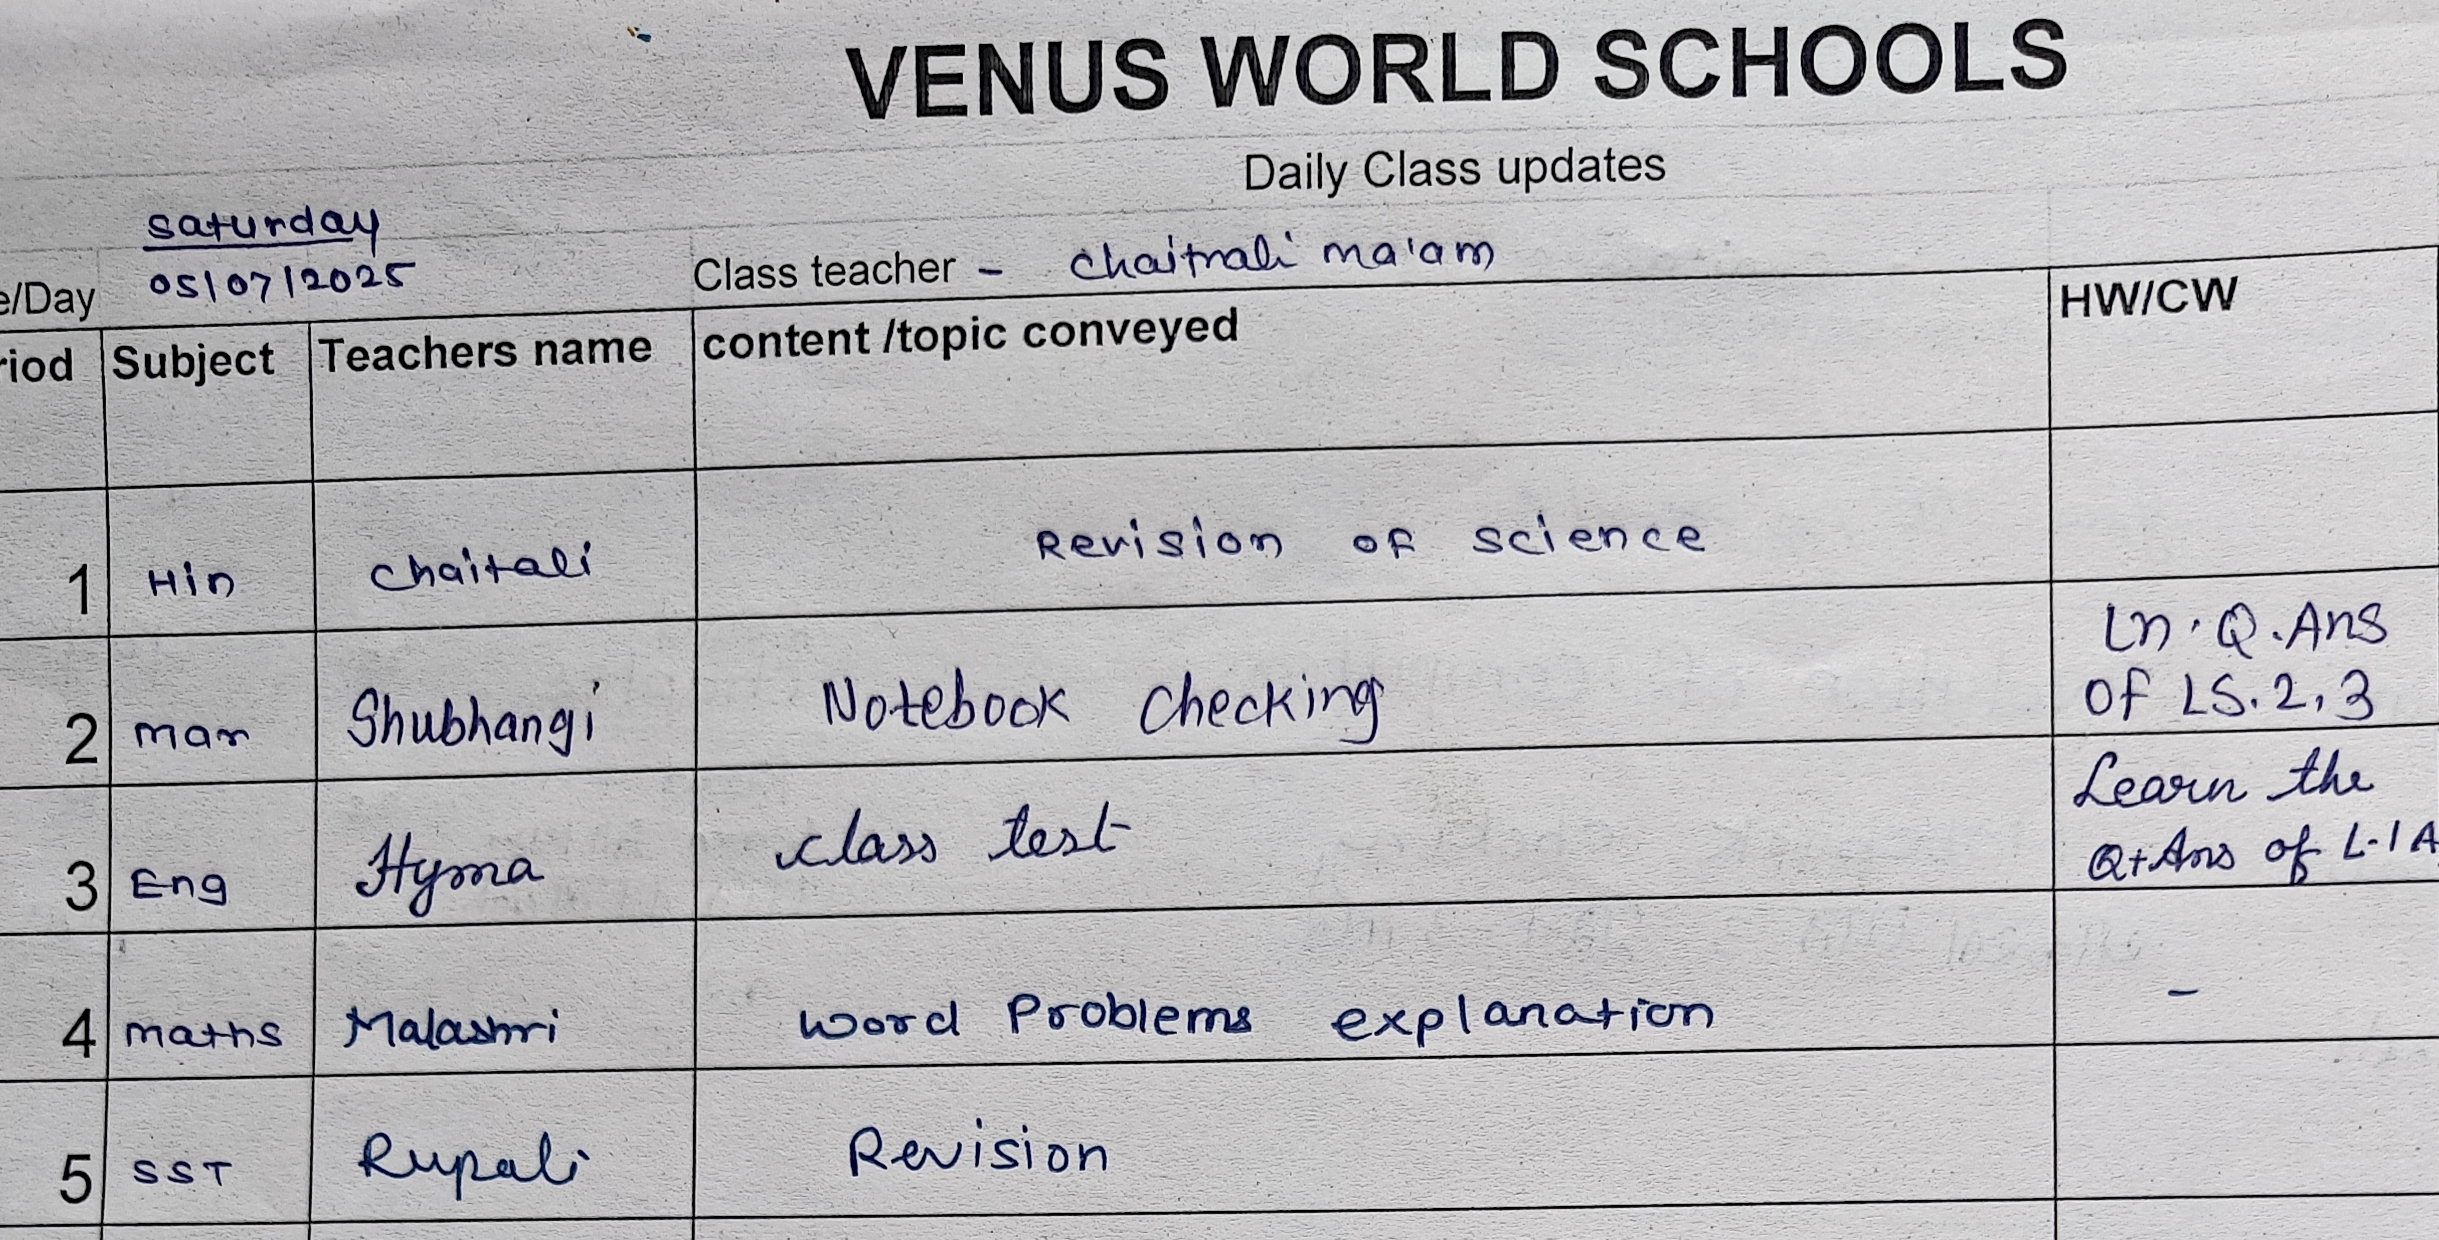 VENUS WORLD SCHOOLS
Daily Class updates
saturday
e/Day 05/07/2025 Class teacher - chaitrali ma'am
riod Subject Teachers name content /topic conveyed HW/CW
1 Hin chaitali Revision of science
2 mar Shubhangi Notebook checking Ln. Q. Ans
of LS. 2, 3
3 Eng Hyma class test Learn the
Q+Ans of L-1A
4 maths Malashri word Problems explanation -
5 SST Rupali Revision